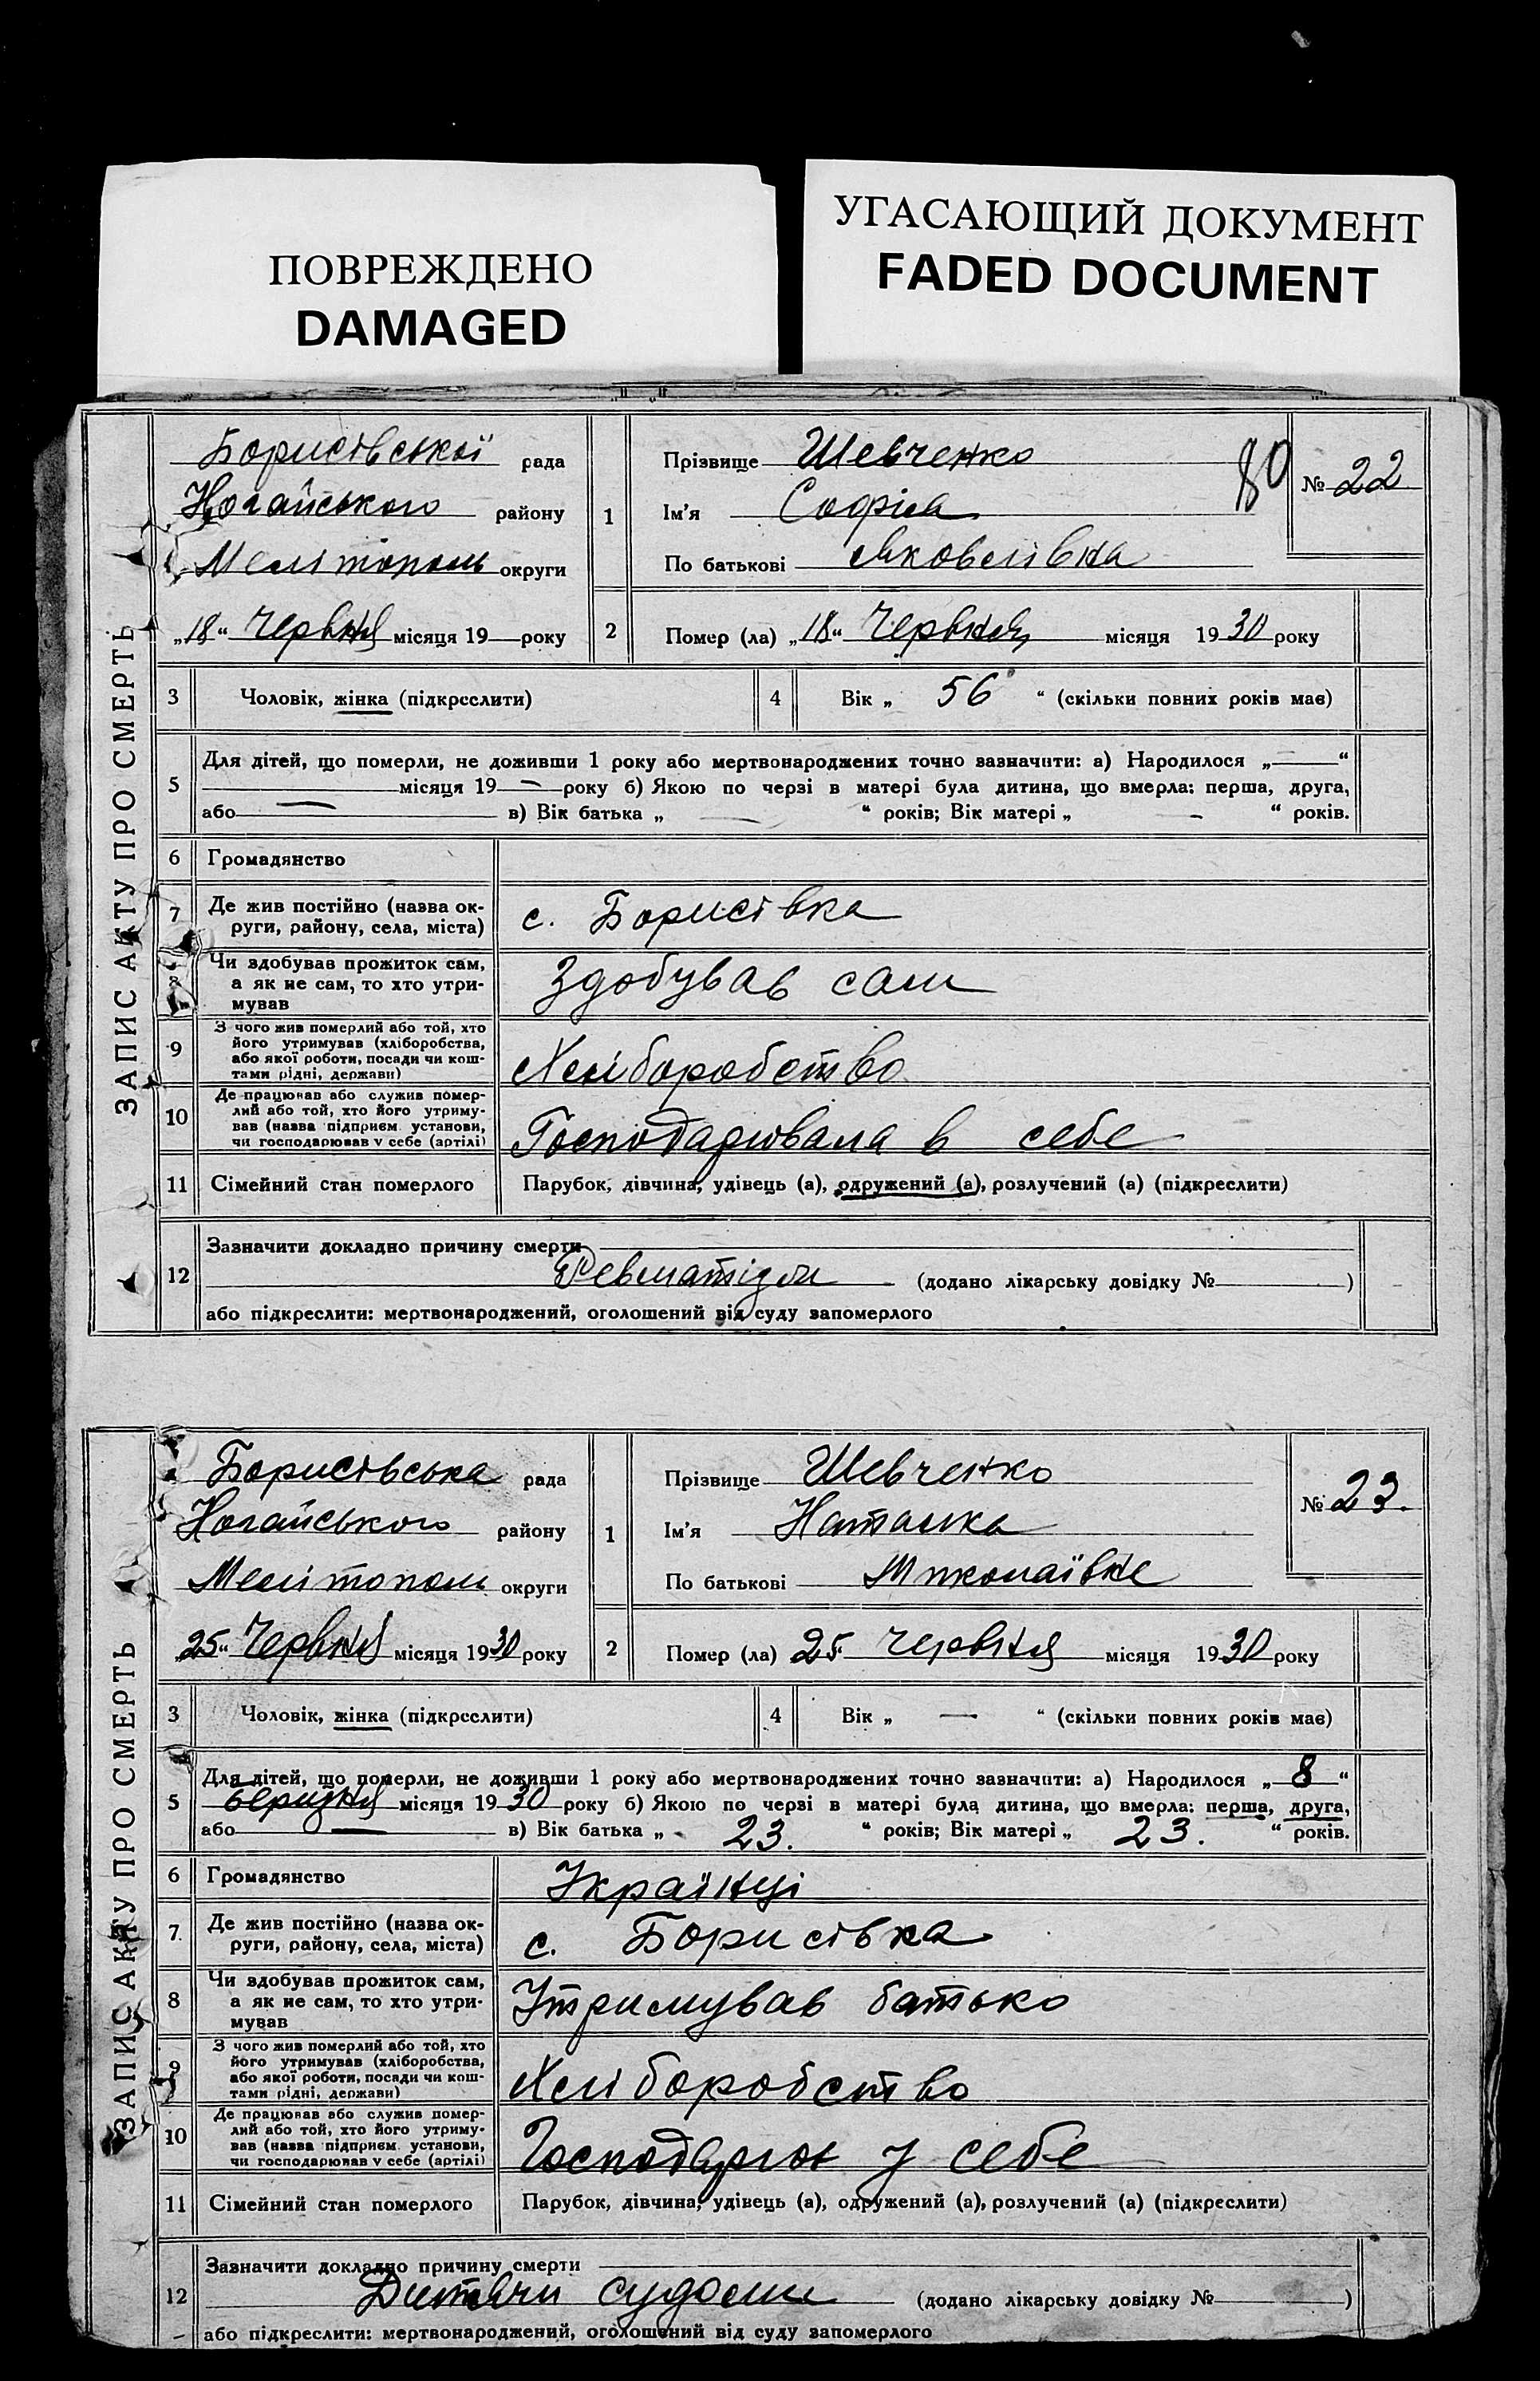 ПОВРЕЖДЕНО
DAMAGED
УГАСАЮЩИЙ ДОКУМЕНТ
FADED DOCUMENT
ЗАПИС АКТУ ПРО СМЕРТЬ
Борисівської рада
Ногайського району
Мелітополь округи
„18“ Червня місяця 19 року
1
Прізвище Шевченко
80
№ 22
Ім'я Софіа
По батькові Яковлівна
2 Помер (ла) „18“ Червня місяця 1930 року
3 Чоловік, жінка (підкреслити)
4 Вік „ 56 “ (скільки повних років має)
5 Для дітей, що померли, не доживши 1 року або мертвонароджених точно зазначити: а) Народилося „ — “
місяця 19 — року б) Якою по черзі в матері була дитина, що вмерла: перша, друга,
або — в) Вік батька „ — “ років; Вік матері „ — “ років.
6 Громадянство
7 Де жив постійно (назва ок-
руги, району, села, міста)
с. Борисівка
8 Чи здобував прожиток сам,
а як не сам, то хто утри-
мував
Здобував сам
9 З чого жив померлий або той, хто
його утримував (хліборобства,
або якої роботи, посади чи кош-
тами рідні, держави)
Хліборобство
10 Де працював або служив помер-
лий або той, хто його утриму-
вав (назва підприєм. установи,
чи господарював у себе (артілі)
Господарювала в себе
11 Сімейний стан померлого Парубок, дівчина, удівець (а), одружений (а), розлучений (а) (підкреслити)
12 Зазначити докладно причину смерти
Ревматізм (додано лікарську довідку № )
або підкреслити: мертвонароджений, оголошений від суду запомерлого
ЗАПИС АКТУ ПРО СМЕРТЬ
Борисівська рада
Ногайського району
Мелітополь округи
„25“ Червня місяця 1930 року
1
Прізвище Шевченко
№ 23.
Ім'я Наташка
По батькові Миколаївне
2 Помер (ла) 25 червня місяця 1930 року
3 Чоловік, жінка (підкреслити)
4 Вік „ — “ (скільки повних років має)
5 Для дітей, що померли, не доживши 1 року або мертвонароджених точно зазначити: а) Народилося „ 8 “
березня місяця 1930 року б) Якою по черзі в матері була дитина, що вмерла: перша, друга,
або — в) Вік батька „ 23. “ років; Вік матері „ 23. “ років.
6 Громадянство Українці
7. Де жив постійно (назва ок-
руги, району, села, міста)
с. Борисівка
8 Чи здобував прожиток сам,
а як не сам, то хто утри-
мував
Утримував батько
9 З чого жив померлий або той, хто
його утримував (хліборобства,
або якої роботи, посади чи кош-
тами рідні, держави)
Хліборобство
10 Де працював або служив помер-
лий або той, хто його утриму-
вав (назва підприєм. установи,
чи господарював у себе (артілі)
у себе
11 Сімейний стан померлого Парубок, дівчина, удівець (а), одружений (а), розлучений (а) (підкреслити)
12 Зазначити докладно причину смерти
Дитячи судоми (додано лікарську довідку № )
або підкреслити: мертвонароджений, оголошений від суду запомерлого